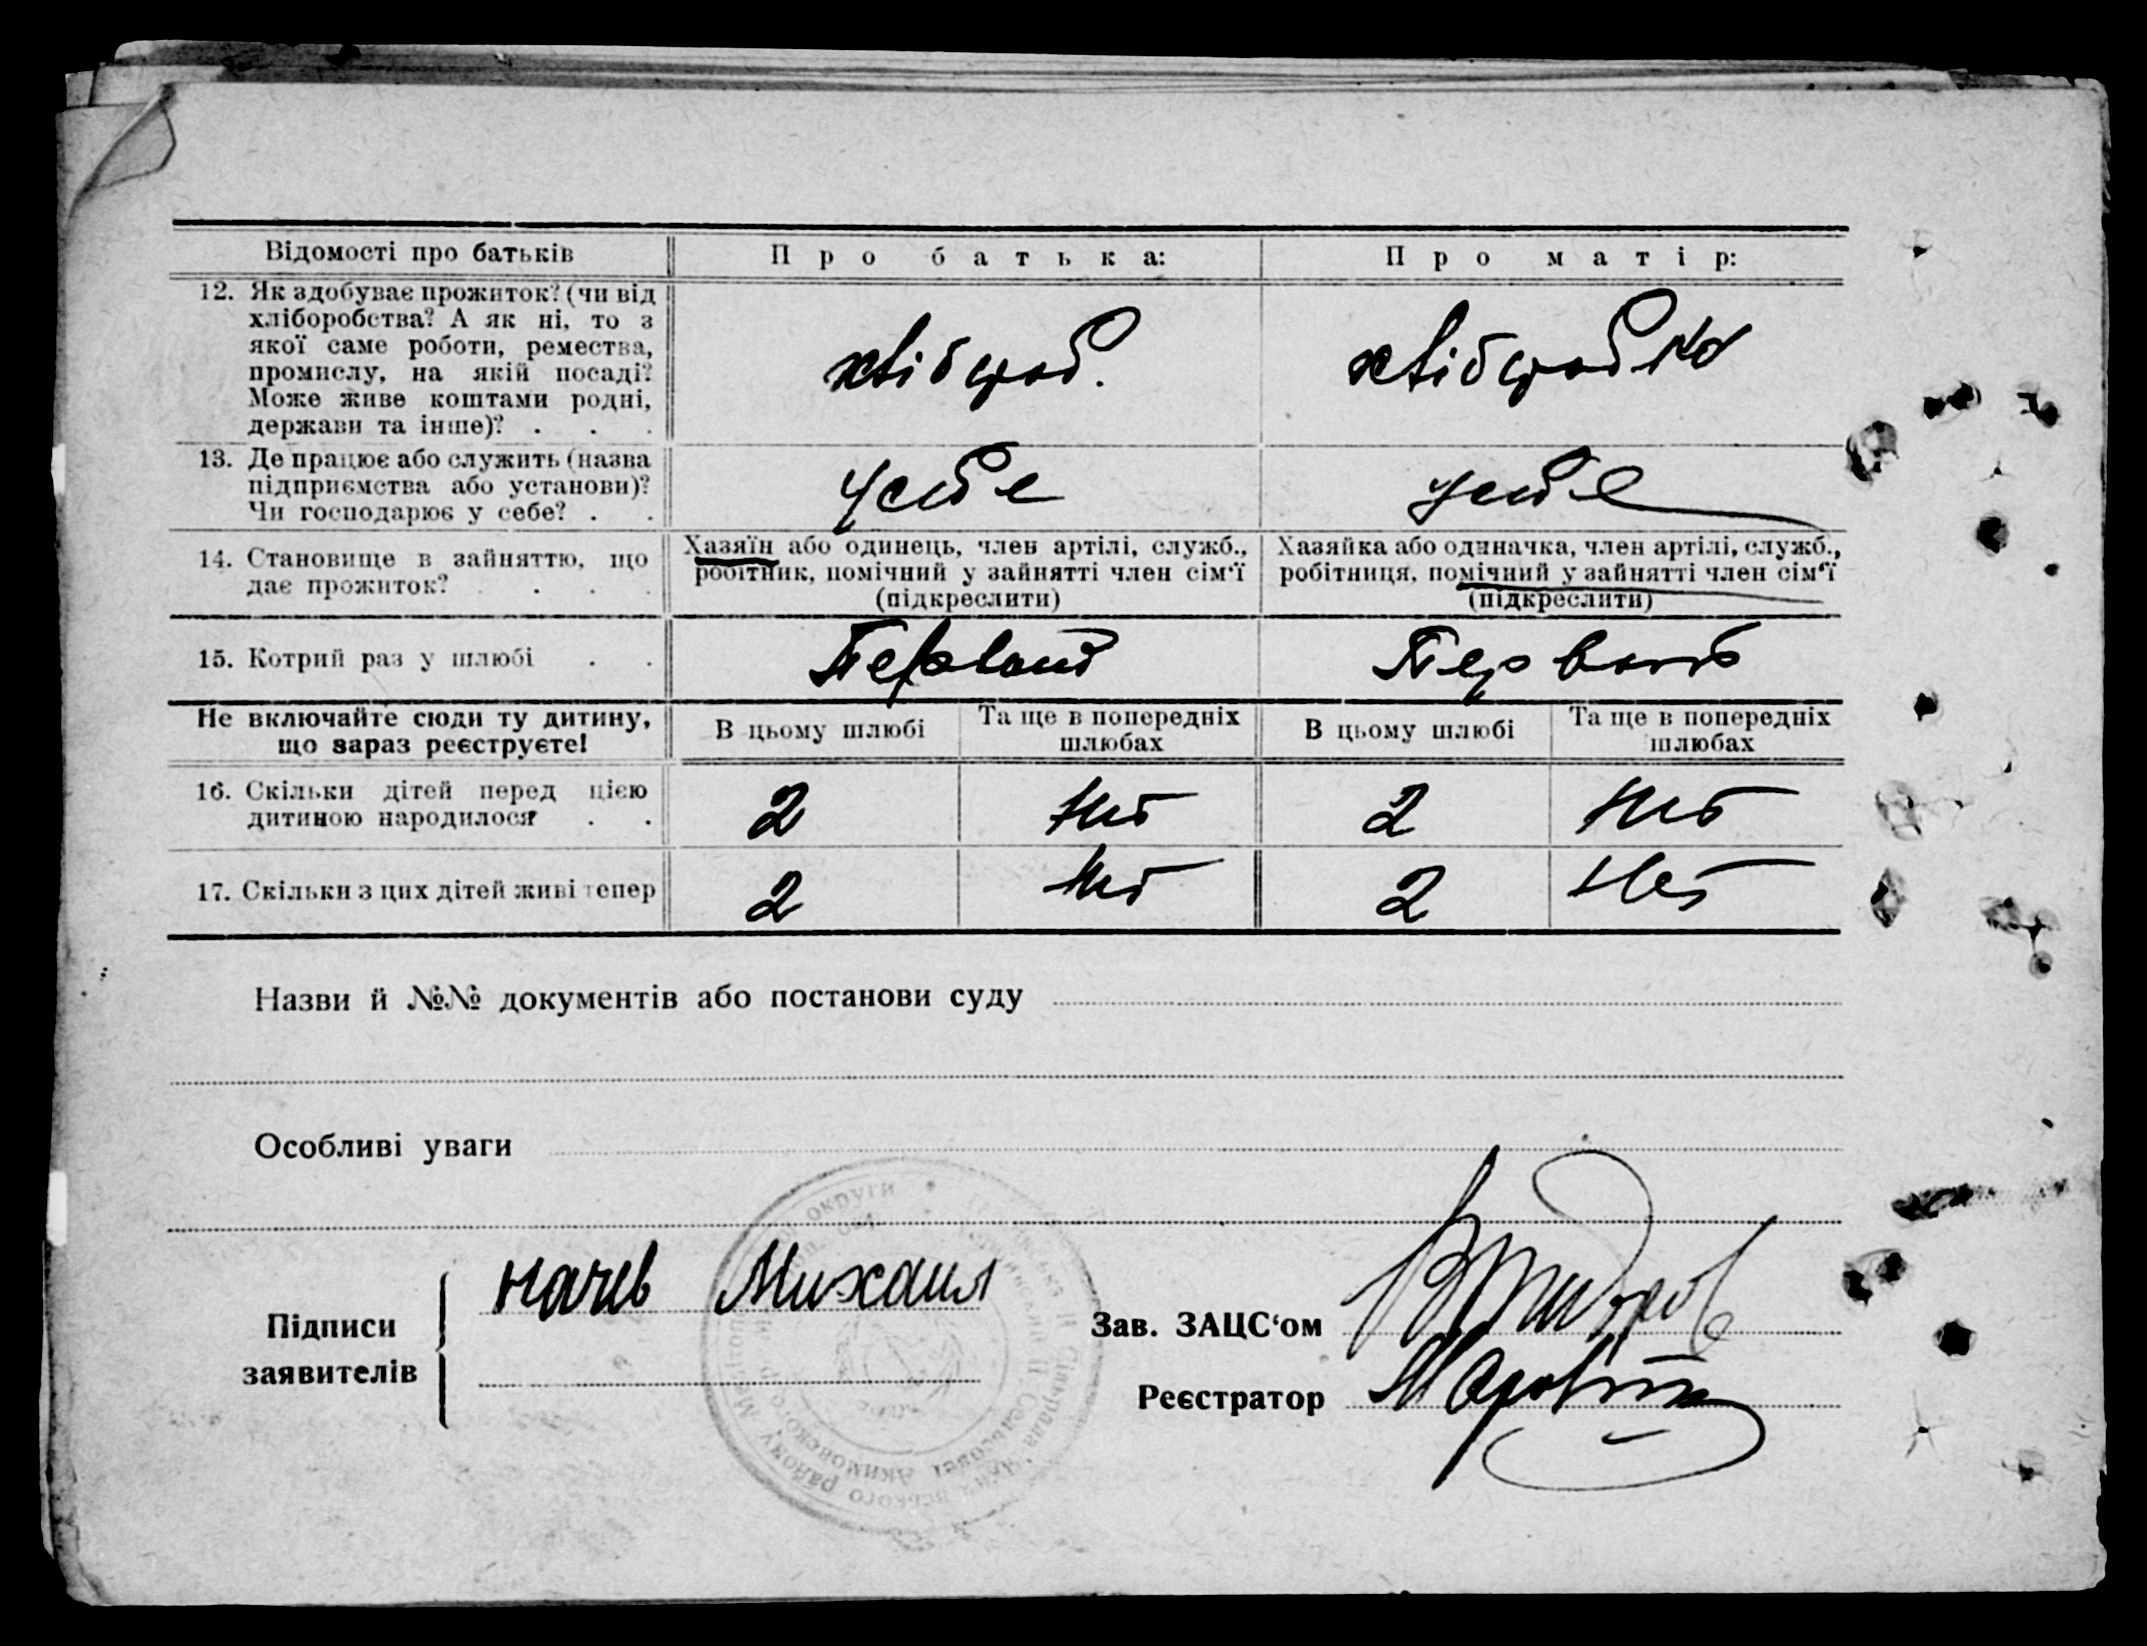 Відомості про батьків
Про батька:
Про матір:
12. Як здобуває прожиток? (чи від
хліборобства? А як ні, то з
якої саме роботи, ремества,
промислу, на якій посаді?
Може живе коштами родні,
держави та інше)? . . .
хлібороб.
хлібороб
13. Де працює або служить (назва
підприємства або установи)?
Чи господарює у себе? . .
у себе
у себе
14. Становище в зайняттю, що
дає прожиток? . . .
Хазяїн або одинець, член артілі, служб.,
робітник, помічний у зайнятті член сім'ї
(підкреслити)
Хазяйка або одиначка, член артілі, служб.,
робітниця, помічний у зайнятті член сім'ї
(підкреслити)
15. Котрий раз у шлюбі . .
Первый
Первый
Не включайте сюди ту дитину,
що зараз реєструєте!
В цьому шлюбі
Та ще в попередніх
шлюбах
В цьому шлюбі
Та ще в попередніх
шлюбах
16. Скільки дітей перед цією
дитиною народилося . .
2
Нет
2
Нет
17. Скільки з цих дітей живі тепер
2
Нет
2
Нет
Назви й №№ документів або постанови суду
Особливі уваги
Підписи
заявителів
Начев Михаил
Зав. ЗАЦС'ом
Реєстратор
округи
району